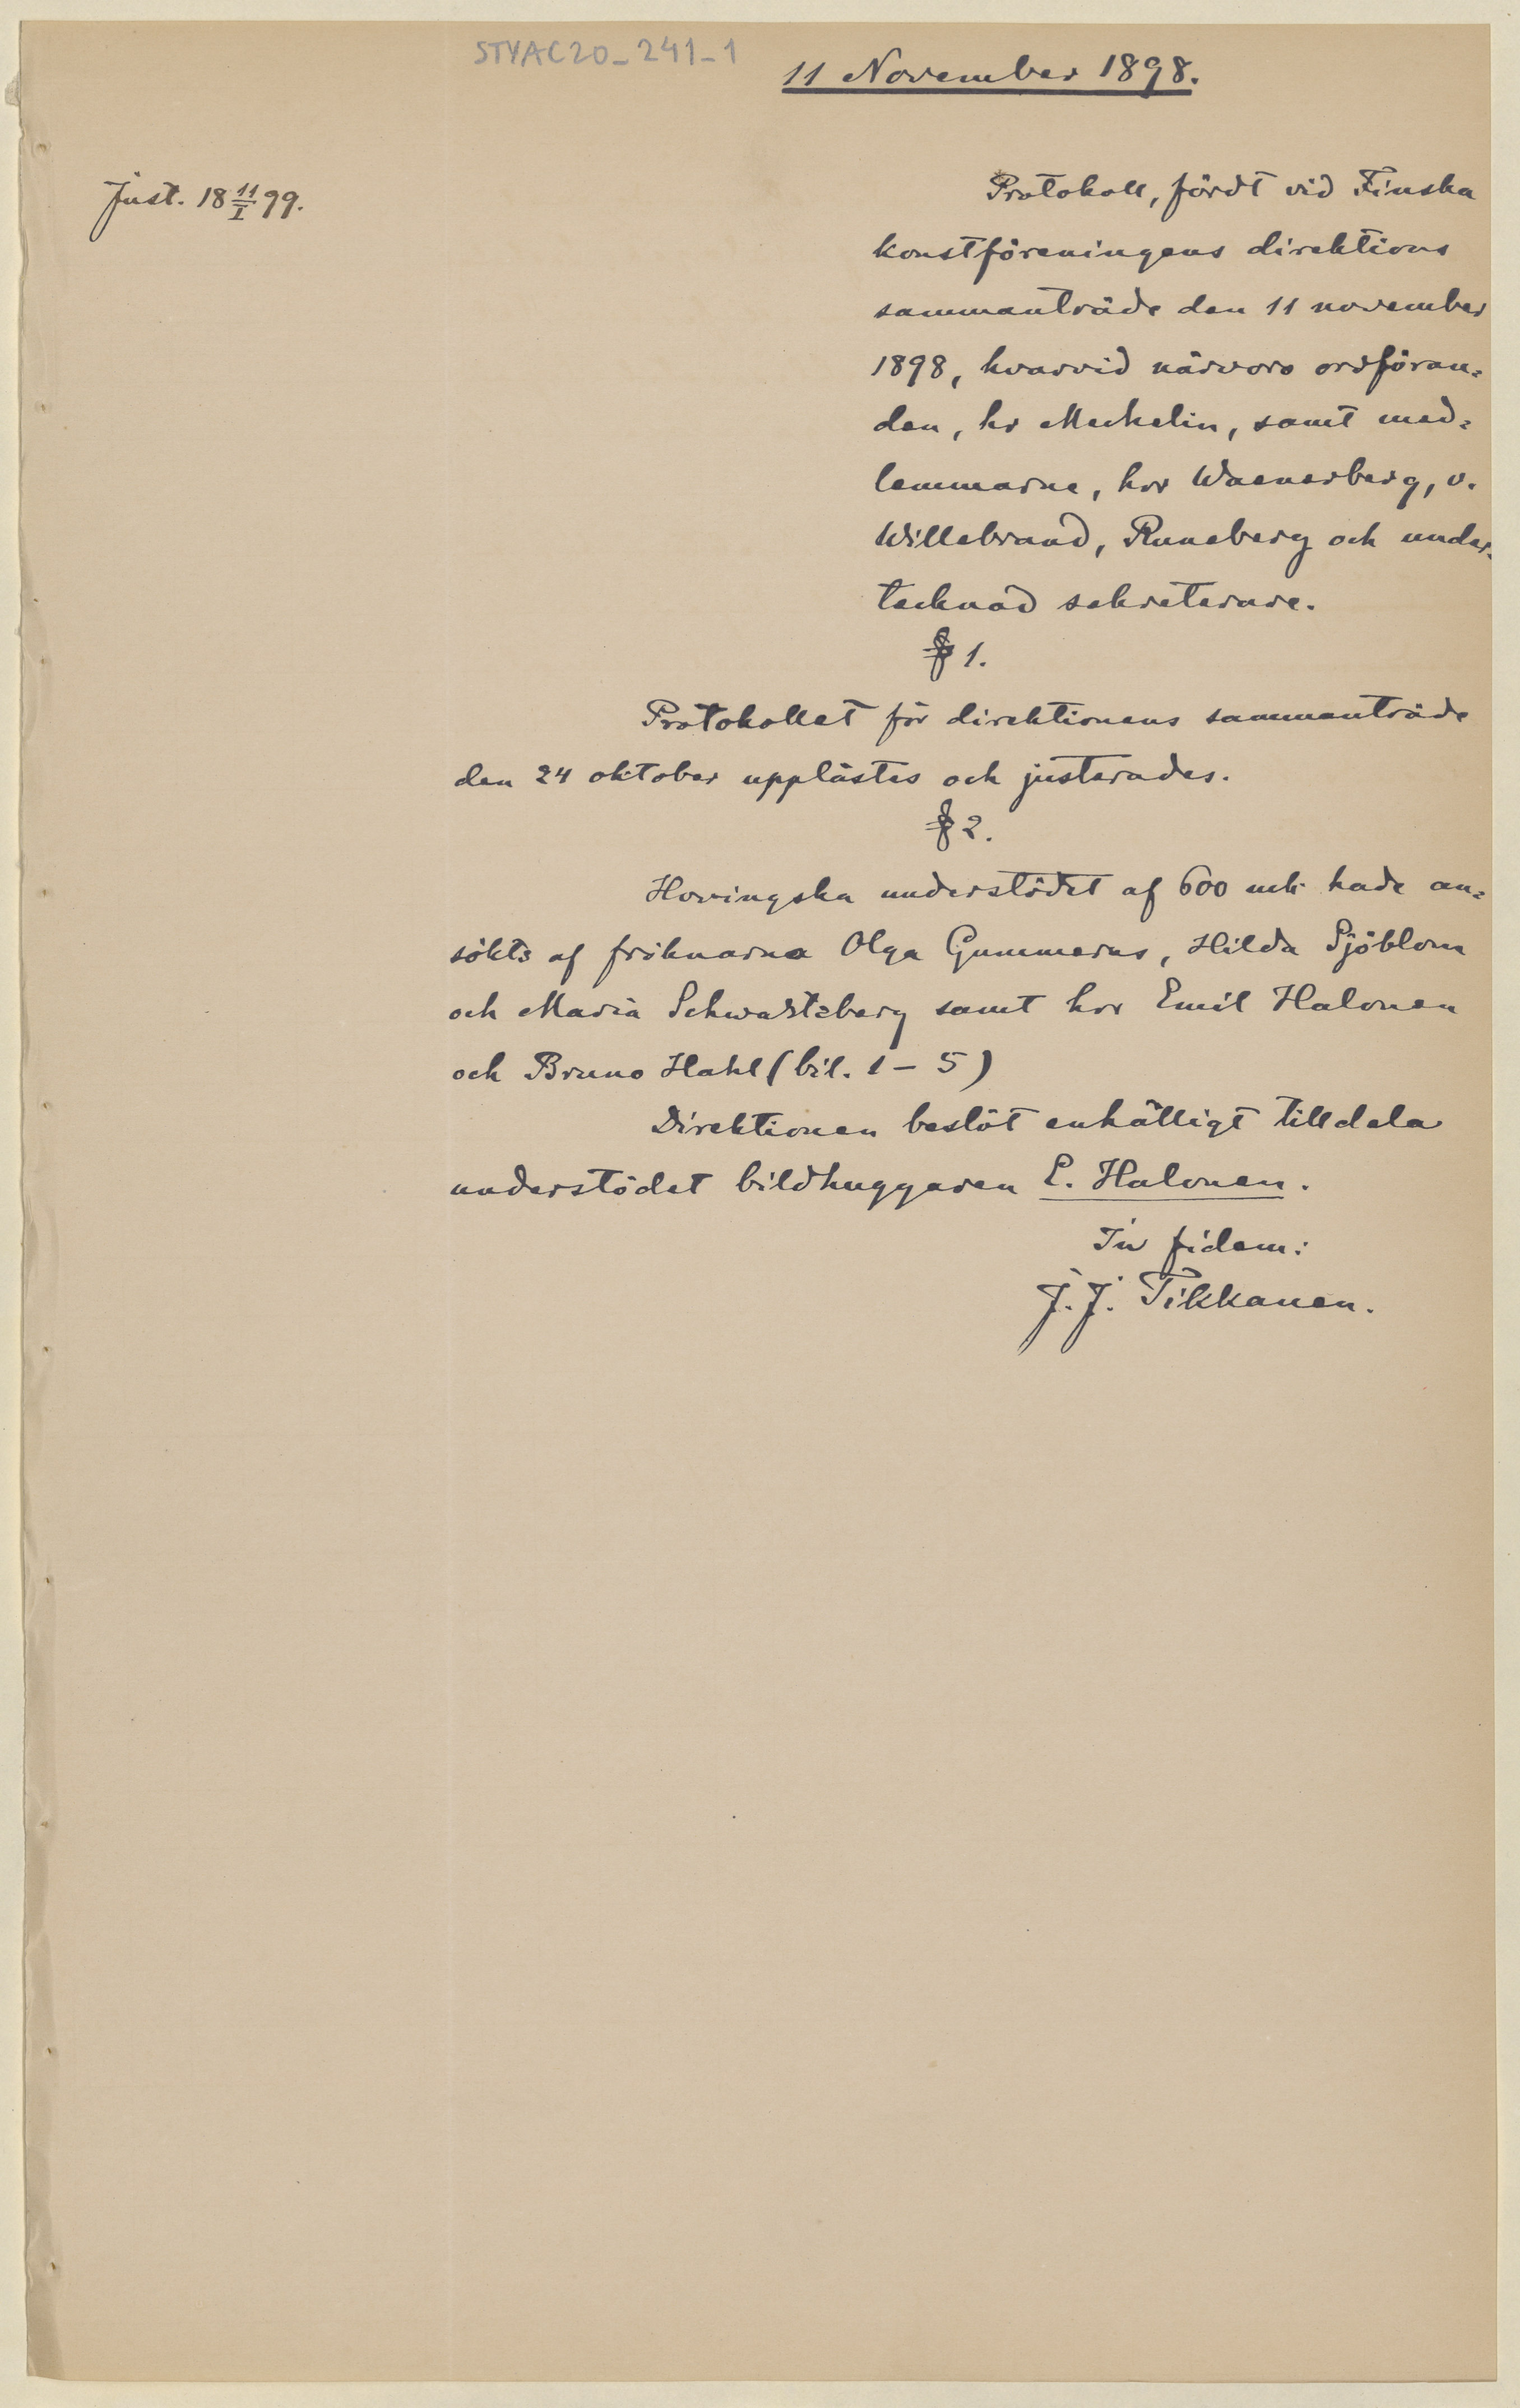 STYAC20_241_1
11 November 1898.
Just. 18 11/I 99.
Protokoll, fördt vid Finska
konstföreningens direktions
sammanträde den 11 november
1898, hvarvid närvoro ordföran=
den, hr Mechelin, samt med=
lemmarne, hrr Waenerberg, v.
Willebrand, Runeberg och under=
tecknad sekreterare.
§ 1.
Protokollet för direktionens sammanträde
den 24 oktober upplästes och justerades.
§ 2.
Hovingska understödet af 600 mk hade an=
sökts af fröknarna Olga Gummerus, Hilda Sjöblom
och Maria Schwartzberg samt hrr Emil Halonen
och Bruno Hahl (bil. 1 – 5)
Direktionen beslöt enhälligt tilldela
understödet bildhuggaren E. Halonen.
In fidem:
J. J. Tikkanen.